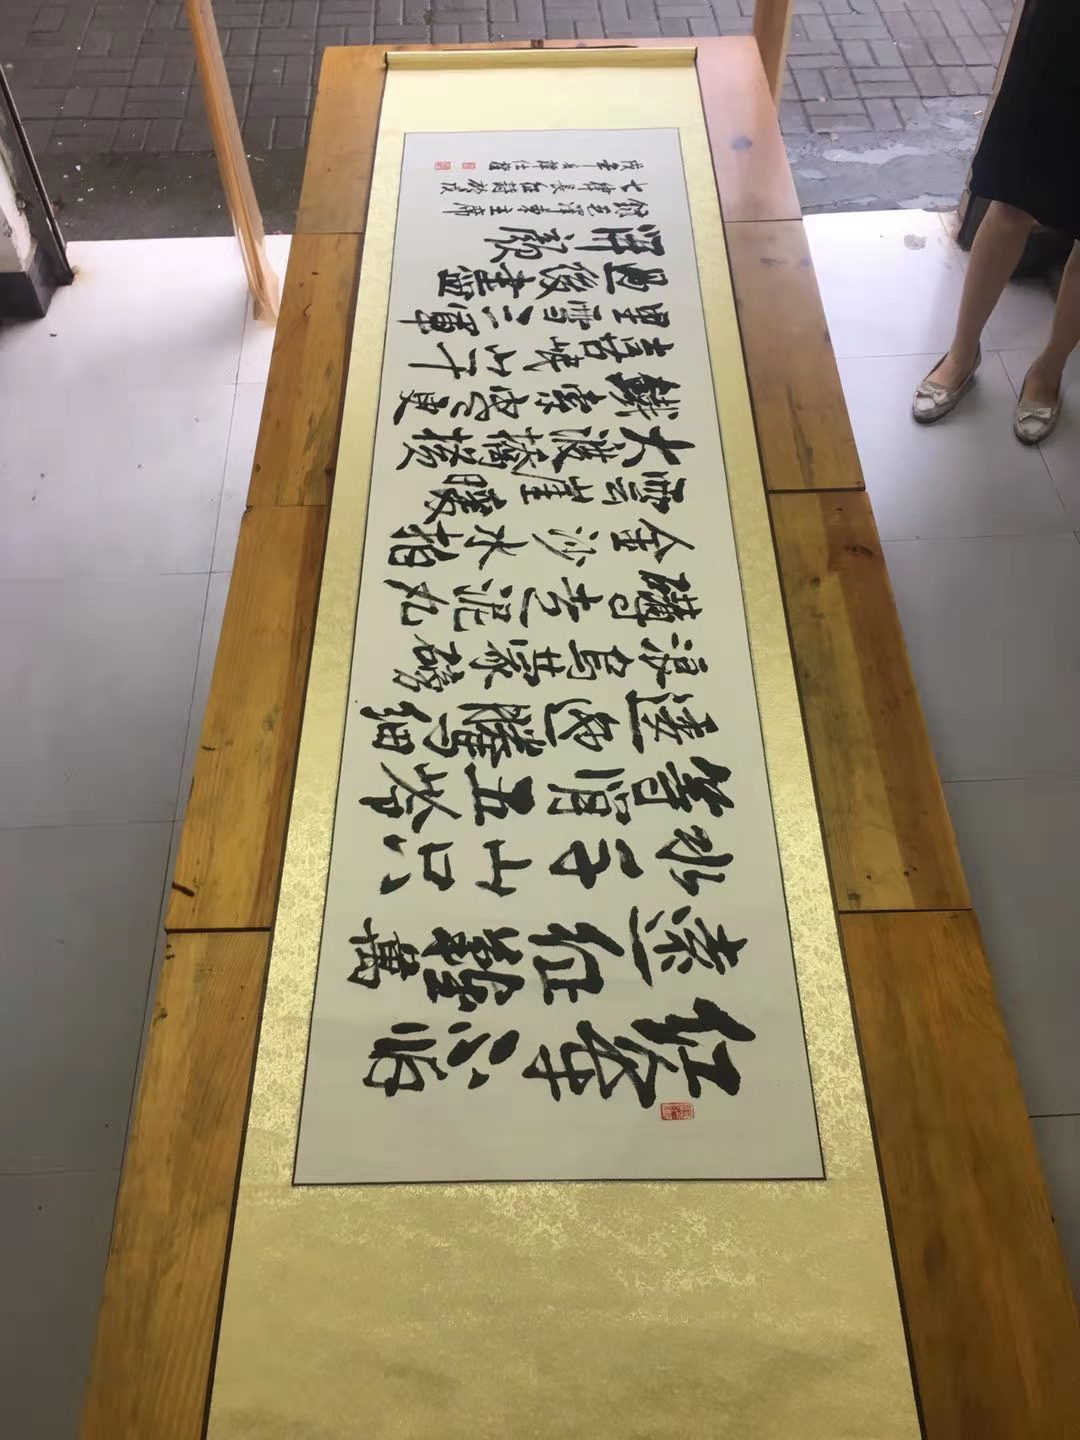 紅軍不怕
遠征難萬
水千山只
等閒五岭
逶迤騰細
浪烏蒙磅
礴走泥丸
金沙水拍
雲崖暖
大渡橋橫
鐵索寒更
喜岷山千
里雪三軍
過後盡
開顏
錄毛澤東主席
七律長征詩於戊